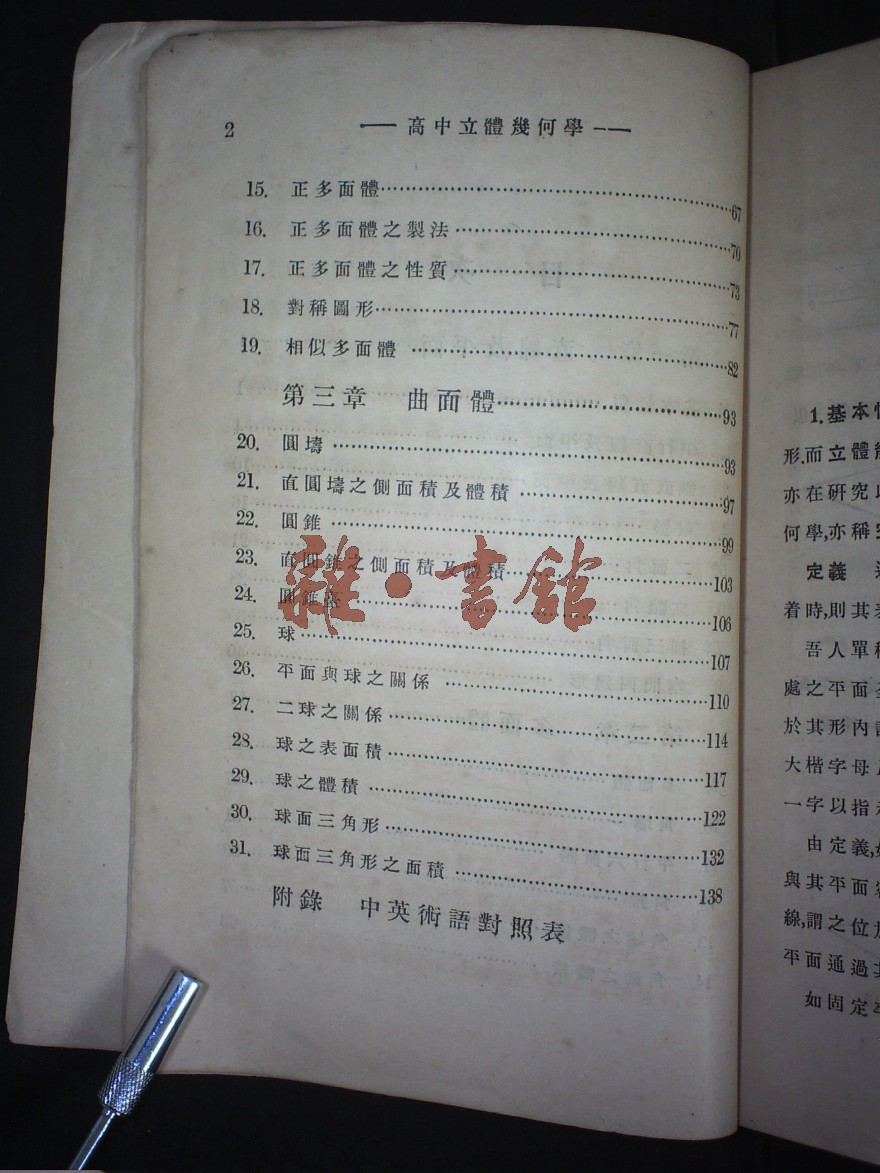 2 — 高中立體幾何學 —
15. 正多面體……67
16. 正多面體之製法……70
17. 正多面體之性質……73
18. 對稱圖形……77
19. 相似多面體……82
第三章 曲面體……93
20. 圓壔……93
21. 直圓壔之側面積及體積……97
22. 圓錐……99
23. 直圓錐之側面積及體積……103
24. 圓錐臺……106
25. 球……107
26. 平面與球之關係……110
27. 二球之關係……114
28. 球之表面積……117
29. 球之體積……122
30. 球面三角形……132
31. 球面三角形之面積……138
附錄 中英術語對照表
雜·書館
1. 基本
形.而立體
亦在研究
何學,亦稱
定義
着時,則其
吾人單稱
處之平面
於其形內
大楷字母
一字以指
由定義,
與其平面
線,謂之位
平面通過其
如固定